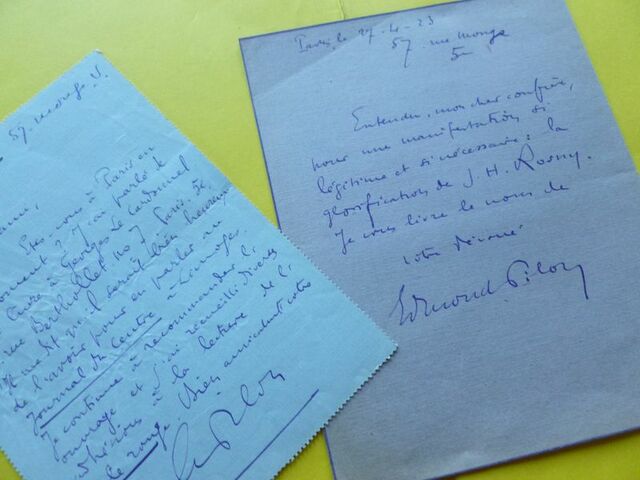 57. rue Monge. V.
Êtes-vous à Paris en
moment ? J'ai parlé de
livre à Georges Le Cardonnel
rue Berthollet no 7. Paris. 5e.
Il me dit qu'il serait bien heureux
de l'avoir pour en parler au
Journal du Centre à Limoges.
Je continue à recommander l'
ouvrage et j'ai recueilli diverses
adhésions à la lecture de
le rouge. Bien amicalement votre
Ed Pilon
Paris, le 27-4-23
57. rue Monge
5e
Entendu, mon cher confrère,
pour une manifestation si
légitime et si nécessaire : la
glorification de J. H. Rosny.
Je vous livre le nom de
votre dévoué
Edmond Pilon